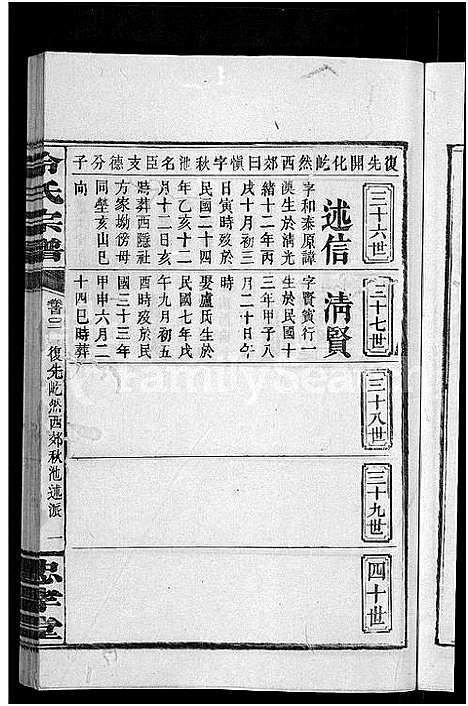 復先開化屹然西郊曰愼字秋池名臣支德分子
三十六世
述信
字和泰原諱
䕫生於淸光
緒十二年丙
戌十月初三
日寅時歿於
民國二十四
年乙亥十二
月十二日亥
時葬西隱社
方家坳傍母
同塋亥山巳
向
三十七世
淸賢
字賢寅行一
生於民國十
三年甲子八
月二十日午
時
娶盧氏生於
民國七年戌
午九月初五
酉時歿於民
國三十三年
甲申六月二
十四巳時葬
三十八世
三十九世
四十世
冷氏宗譜
卷二
復先屹然西郊秋池述派
一
忠孝堂
FamilySearch